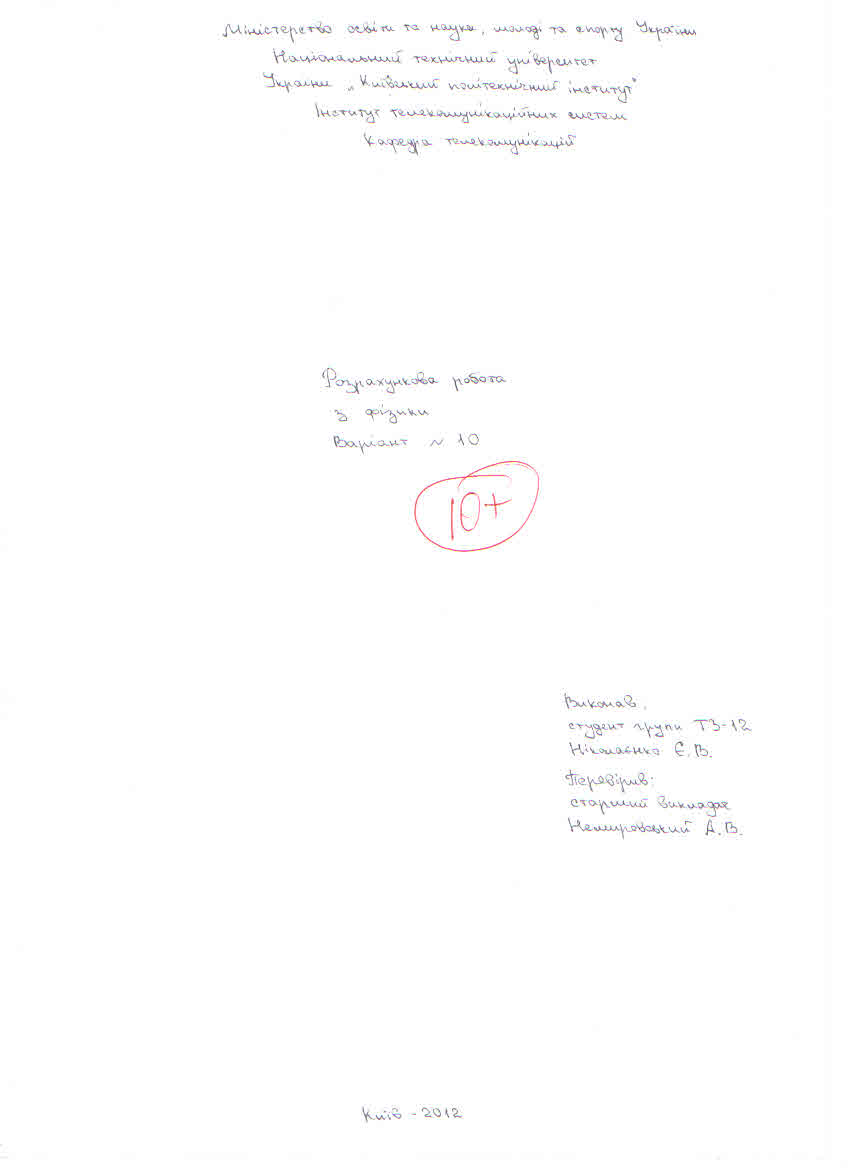 Міністерство освіти та науки, молоді та спорту України
Національний технічний університет
України „Київський політехнічний інститут"
Інститут телекомунікаційних систем
Кафедра телекомунікацій
Розрахункова робота
з фізики
Варіант № 10
10+
Виконав,
студент групи ТЗ-12
Ніколаєнко Є.В.
Перевірив:
старший викладач
Немировський А.В.
Київ - 2012